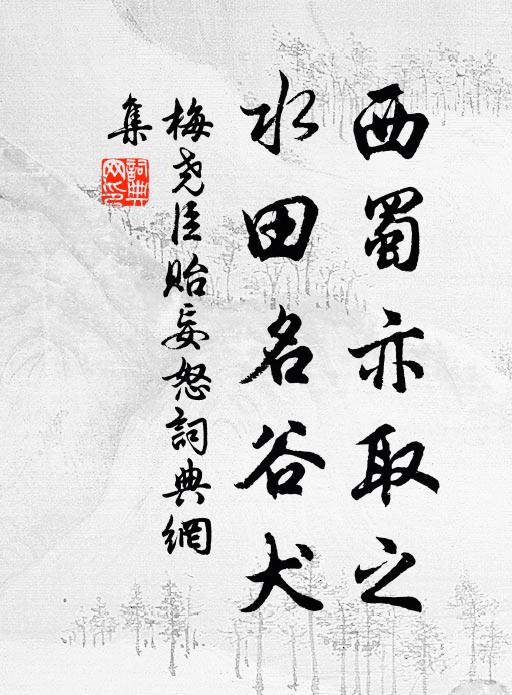 西蜀亦取之
水田名谷犬
梅尧臣贻妄怒詞典網
集
詞典
网印